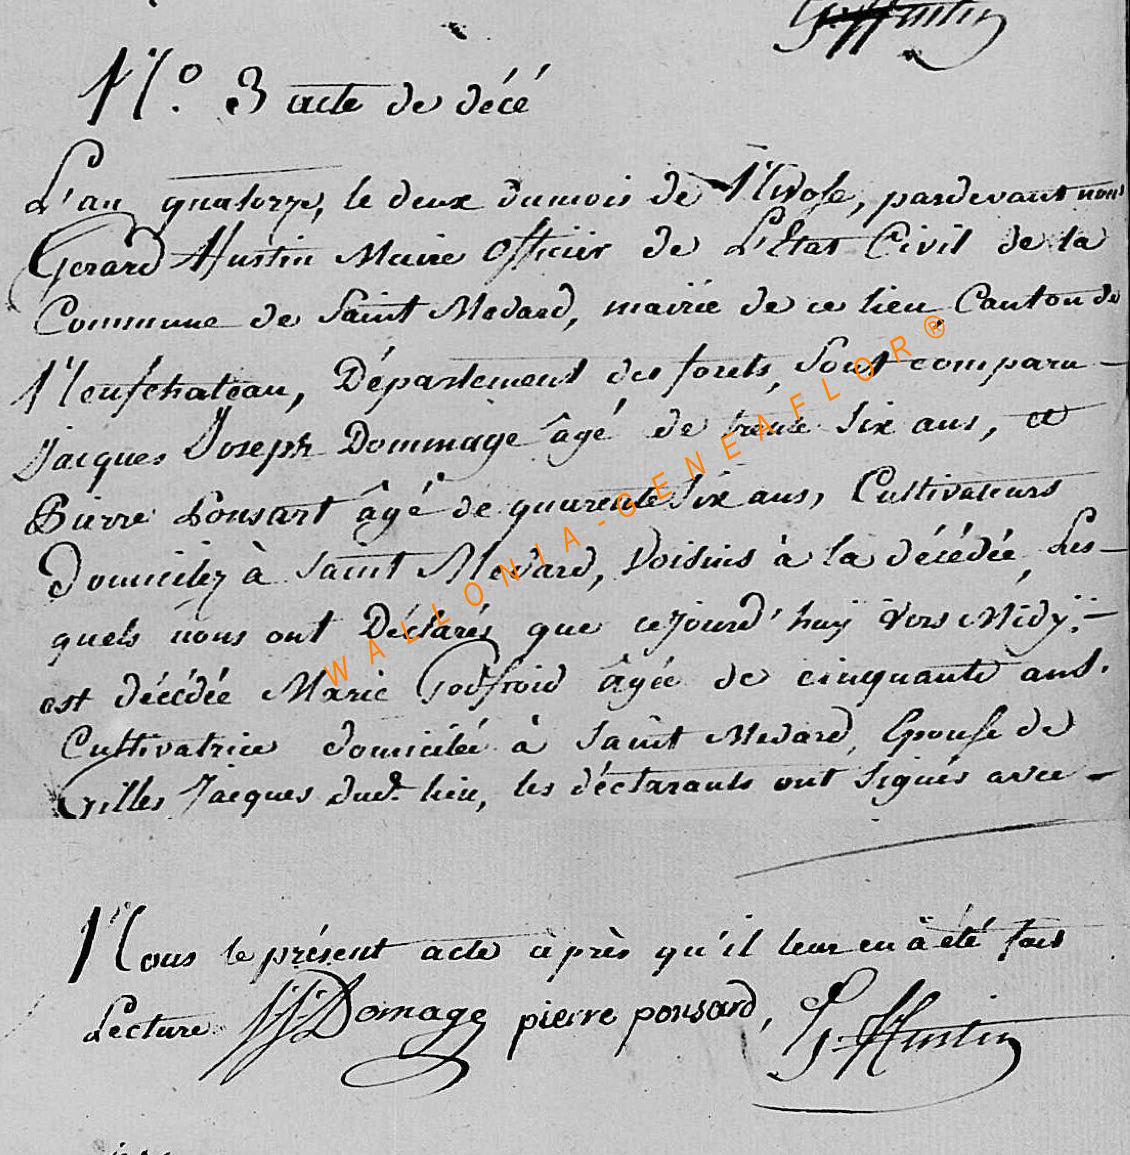 G Hustin
N.º 3 acte de décé
L'an quatorze, le deux dumois de Nivose, pardevant nous
Gerard Hustin Maire Officier de L'Etat Civil de la
Commune de Saint Medard, mairie de ce lieu, Canton de
Neufchateau, Département des forets, Sont comparu
Jacques Joseph Dommage âgé de trente Six ans, et
Pierre Ponsart âgé de quarente Six ans, Cultivateurs
Domiciliez à Saint Medard, Voisins à la décédée, Les-
quels nous ont Déclarés que cejourd'huy Vers Midy,
est décédée Marie Godfroid âgée de cinquante ans.
Cultivatrice domiciliée à Saint Medard, Epouse de
Gilles Jacques dudt. lieu, les déclarants ont Signés avec
Nous le présent acte après qu'il leur en à été fait
Lecture JJ Domage pierre ponsard, G. Hustin
WALLONIA-GENEAFLOR®